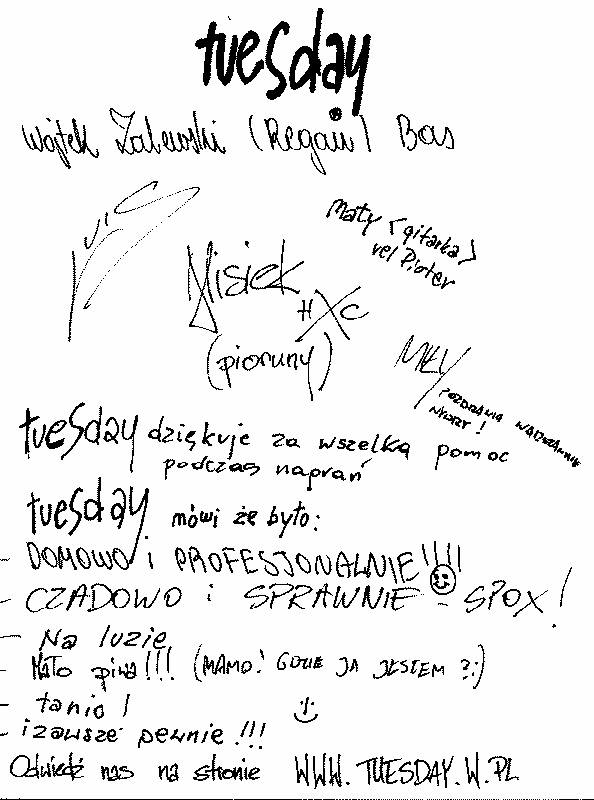 tuesday
Wojtek Zalewski (Regaiu) Bas
Maty (gitarka)
vel Pioter
Misiek
HXC
(pioruny)
MIŁY
POZDRAWIA
tuesday dziękuje za wszelką pomoc
podczas naprań
tuesday mówi że było:
- DOMOWO i PROFESJONALNIE!!!!
- CZADOWO i SPRAWNIE - SPOX!
- Na luzie
- MAŁO piwa!!! (MAMO! GDZIE JA JESTEM ?:)
- tanio!
- i zawsze pewnie!!!
Odwiedź nas na stronie WWW.TUESDAY.W.PL